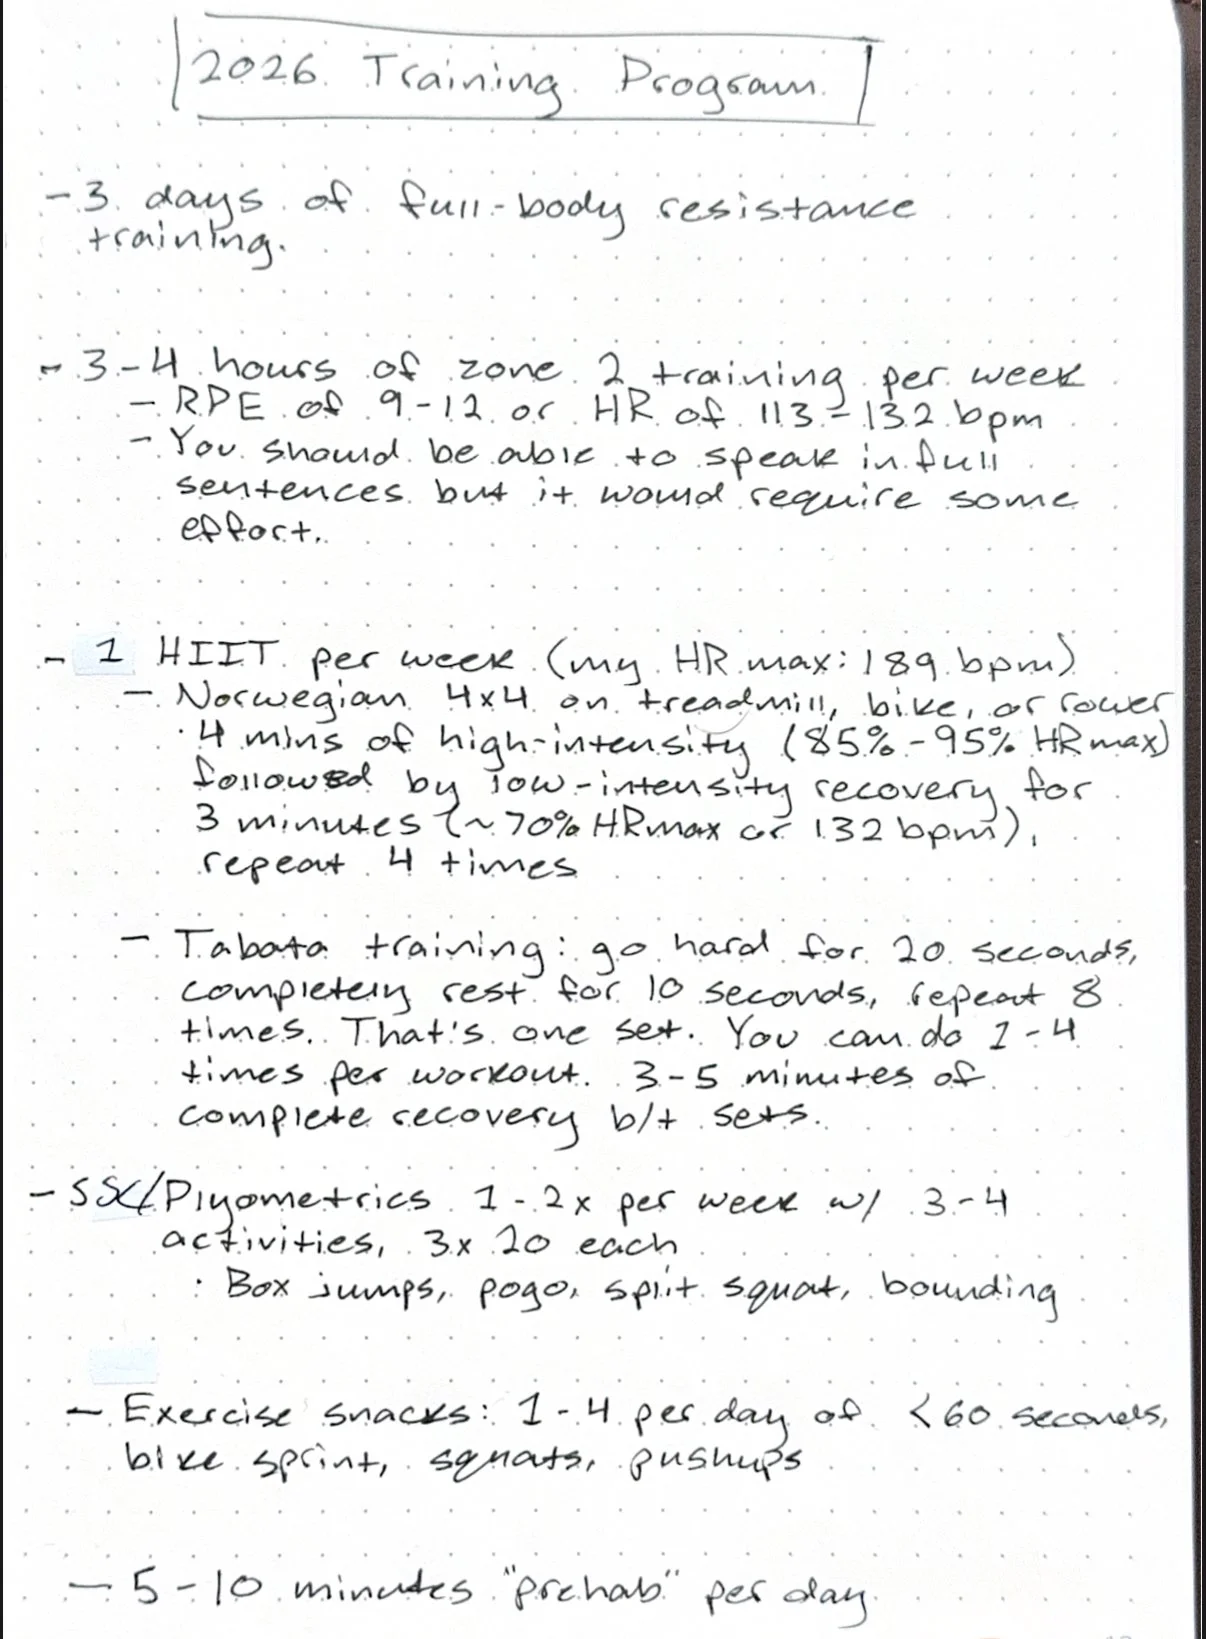 2026 Training Program
- 3 days of full-body resistance
training.
- 3-4 hours of zone 2 training per week
- RPE of 9-12 or HR of 113-132 bpm
- You should be able to speak in full
sentences but it would require some
effort.
- 1 HIIT per week (my HR max: 189 bpm)
- Norwegian 4x4 on treadmill, bike, or rower
· 4 mins of high-intensity (85%-95% HRmax)
followed by low-intensity recovery for
3 minutes (~70% HRmax or 132 bpm),
repeat 4 times
- Tabata training: go hard for 20 seconds,
completely rest for 10 seconds, repeat 8
times. That's one set. You can do 1-4
times per workout. 3-5 minutes of
complete recovery b/t sets.
- SSC/Plyometrics 1-2x per week w/ 3-4
activities, 3x20 each
· Box jumps, pogo, split squat, bounding
- Exercise snacks: 1-4 per day of <60 seconds,
bike sprint, squats, pushups
- 5-10 minutes "prehab" per day